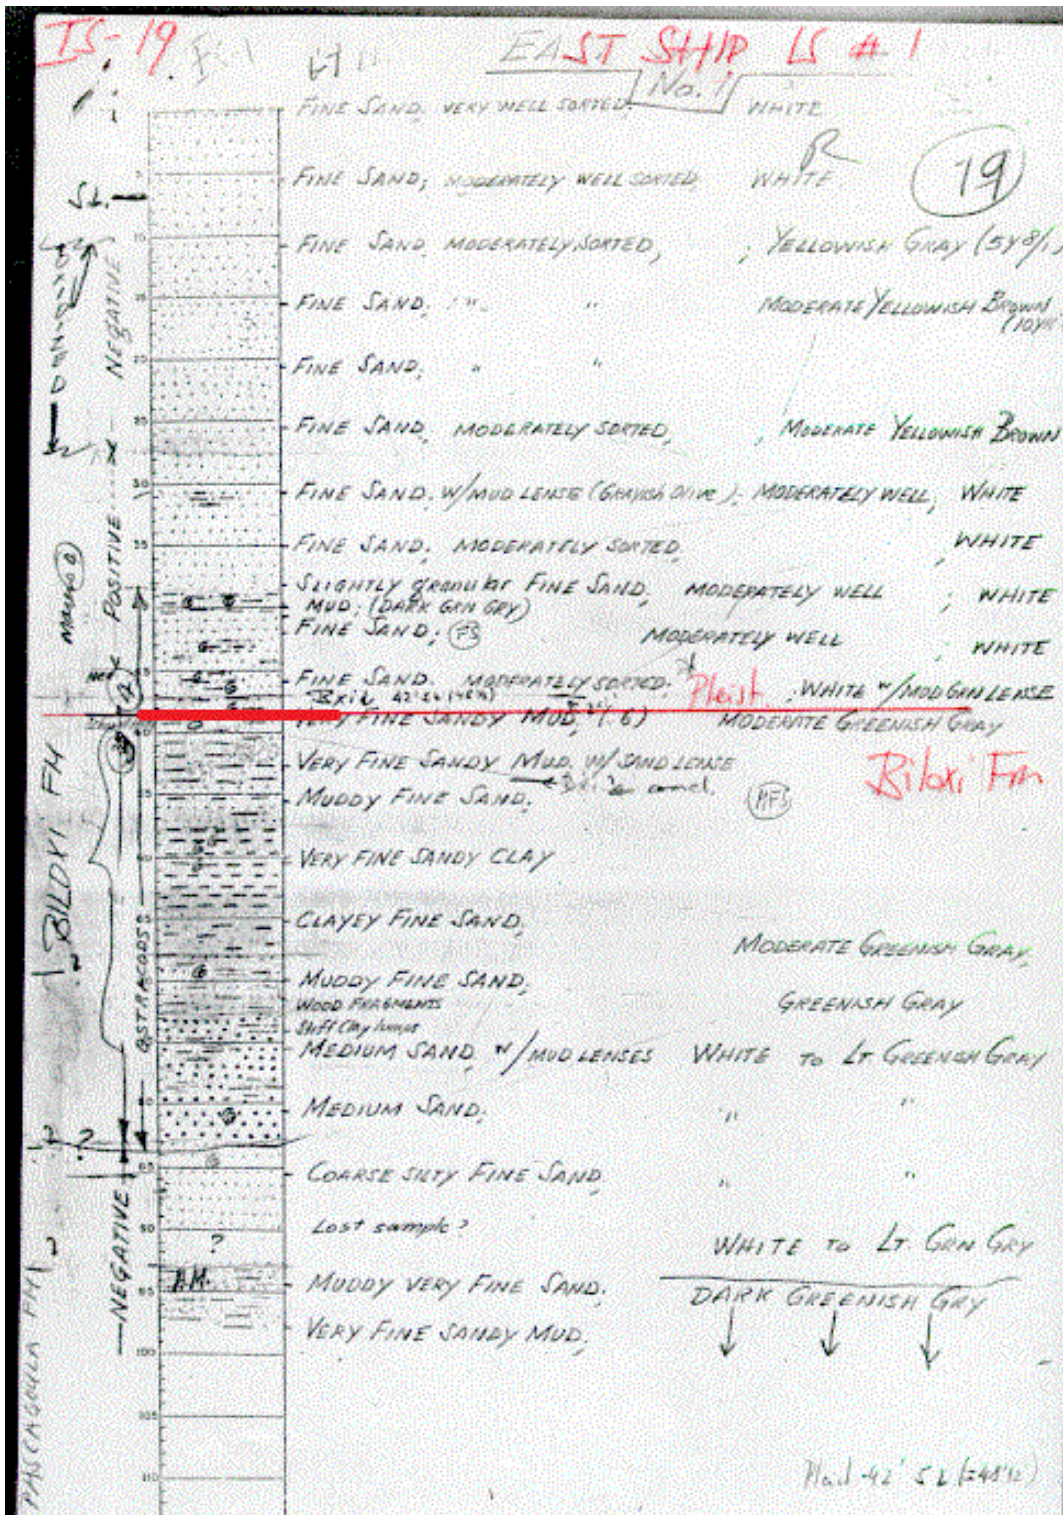 IS-19 EAST SHIP IS # 1
No. 1
FINE SAND, VERY WELL SORTED, WHITE
FINE SAND; MODERATELY WELL SORTED, WHITE
19
SL.
FINE SAND, MODERATELY SORTED, ; YELLOWISH GRAY (5Y8/1)
FINE SAND, " " MODERATE YELLOWISH BROWN
(10YR
FINE SAND, " "
FINE SAND, MODERATELY SORTED, , MODERATE YELLOWISH BROWN
NEGATIVE
FINE SAND. W/MUD LENSE (GRAYISH OLIVE). MODERATELY WELL, WHITE
FINE SAND. MODERATELY SORTED, WHITE
SLIGHTLY granular FINE SAND. MODERATELY WELL ; WHITE
MUD; (DARK GRN GRY)
FINE SAND; FS MODERATELY WELL ; WHITE
POSITIVE
FINE SAND. MODERATELY SORTED. Pleist. WHITE W/MOD GRN LENSE
FINE SANDY MUD, MODERATE GREENISH GRAY
VERY FINE SANDY MUD. W/SAND LENSE
Biloxi Fm
MUDDY FINE SAND,
VERY FINE SANDY CLAY
CLAYEY FINE SAND,
MODERATE GREENISH GRAY,
MUDDY FINE SAND, GREENISH GRAY
WOOD FRAGMENTS
Stiff Clay lumps
MEDIUM SAND W/MUD LENSES WHITE TO LT GREENISH GRAY
MEDIUM SAND. " "
BILOXI FM
OSTRACODS
? ?
COARSE SILTY FINE SAND, " "
90 Lost sample?
?
WHITE TO LT. GRN GRY
95 H.M. MUDDY VERY FINE SAND. DARK GREENISH GRY
VERY FINE SANDY MUD.
NEGATIVE
PASCAGOULA FM
100
105
110